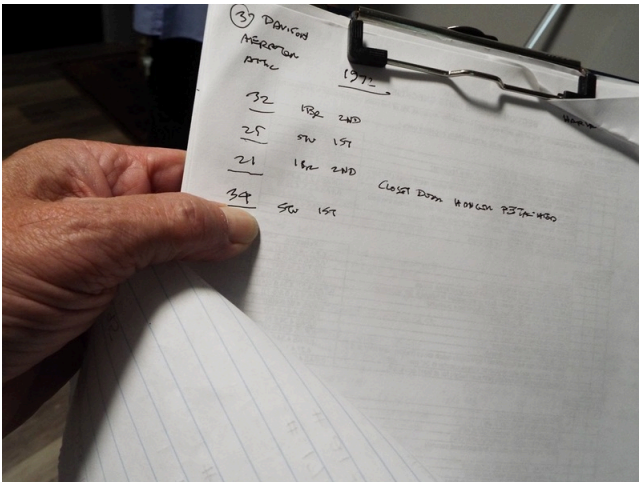 ③ DAVISON
1972
32 1BR 2ND
25 STU 1ST
21 1BR 2ND CLOSET DOOR HANGER DETACHED
34 STU 1ST